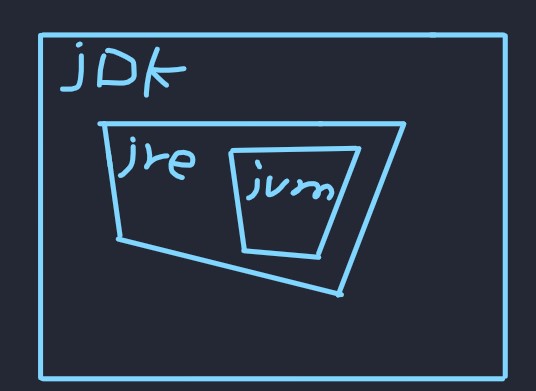 jDK
jre
jvm